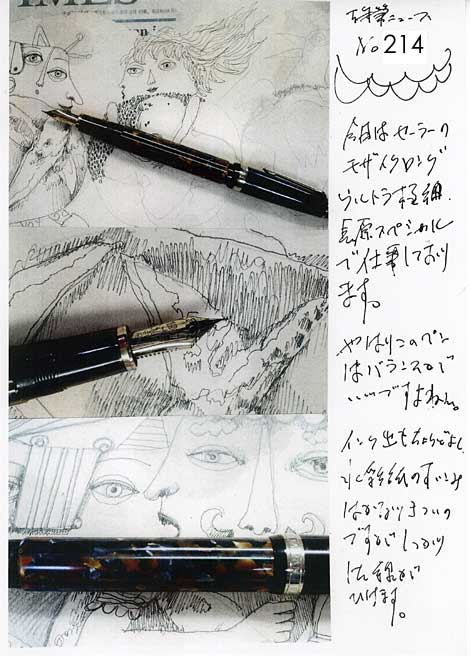 IMES
万年筆ニュース
No 214
今日はセーラーの
モザイクロング
ウルトラ極細、
長原スペシャル
で仕事しており
ます。
やはりこのペン
はバランスが
いいですよねえ。
インク出もちょうどよく
水彩紙のすいこみ
はかなりきついの
ですがしっかり
した線が
ひけます。